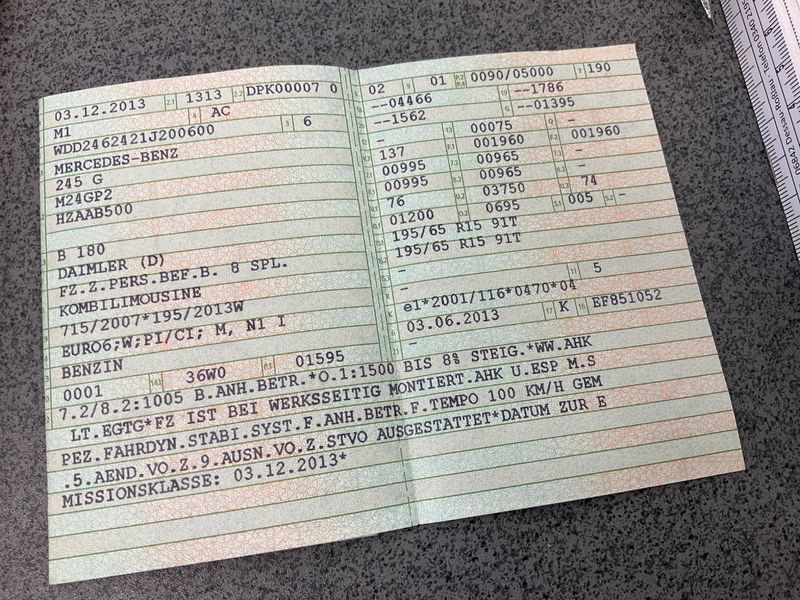 03.12.2013 2.1 1313 2.2 DPK00007 0
M1 4 AC
WDD2462421J200600 3 6
MERCEDES-BENZ
245 G
M24GP2
HZAAB500
B 180
DAIMLER (D)
FZ.Z.PERS.BEF.B. 8 SPL.
KOMBILIMOUSINE
715/2007*195/2013W
EURO6;W;PI/CI; M, N1 I
BENZIN
0001 14.1 36W0 P.1 01595
02 9 01 P.2 P.4 0090/05000 T 190
--04466 18 --1786
--1562 G --01395
- 13 00075 Q -
137 F.1 001960 F.2 001960
00995 7.2 00965 -
00995 8.2 00965 -
76 U.2 03750 U.3 74
01200 O.2 0695 S.1 005 S.2 -
195/65 R15 91T
195/65 R15 91T
-
- 11 5
e1*2001/116*0470*04
03.06.2013 17 K 16 EF851052
-
7.2/8.2:1005 B.ANH.BETR.*O.1:1500 BIS 8% STEIG.*WW.AHK
LT.EGTG*FZ IST BEI WERKSSEITIG MONTIERT.AHK U.ESP M.S
PEZ.FAHRDYN.STABI.SYST.F.ANH.BETR.F.TEMPO 100 KM/H GEM
.5.AEND.VO.Z.9.AUSN.VO.Z.STVO AUSGESTATTET*DATUM ZUR E
MISSIONSKLASSE: 03.12.2013*
06842 Dessau-Roßlau, Telefon 0340 219